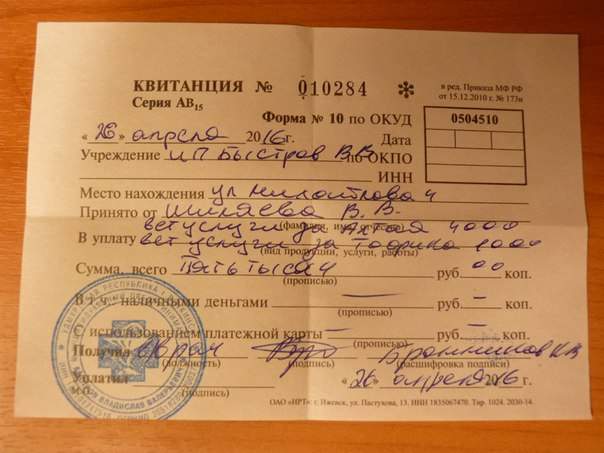 КВИТАНЦИЯ № 010284 ✻
в ред. Приказа МФ РФ
Серия АВ15
от 15.12.2010 г. № 173н
Форма № 10 по ОКУД 0504510
« 26 » апреля 2016г. Дата
Учреждение ИП Быстров В.В. по ОКПО
ИНН
Место нахождения ул 4
Принято от Шиляева В. В.
(фамилия, имя, отчество)
вет услуги за 4000
В уплату вет услуги за 1000
(вид продукции, услуги, работы)
Сумма, всего Пять тысяч руб. 00 коп.
(прописью)
В т.ч.: наличными деньгами — руб. – коп.
(прописью)
с использованием платежной карты – руб. – коп.
(прописью)
Получил врач Бранников К.В.
(должность) (подпись) (расшифровка подписи)
Уплатил « 26 » апреля 2016г.
(подпись)
М.П.
ОАО «ИРТ» г. Ижевск, ул. Пастухова, 13. ИНН 1835067470. Тир. 1024. 2030-14.